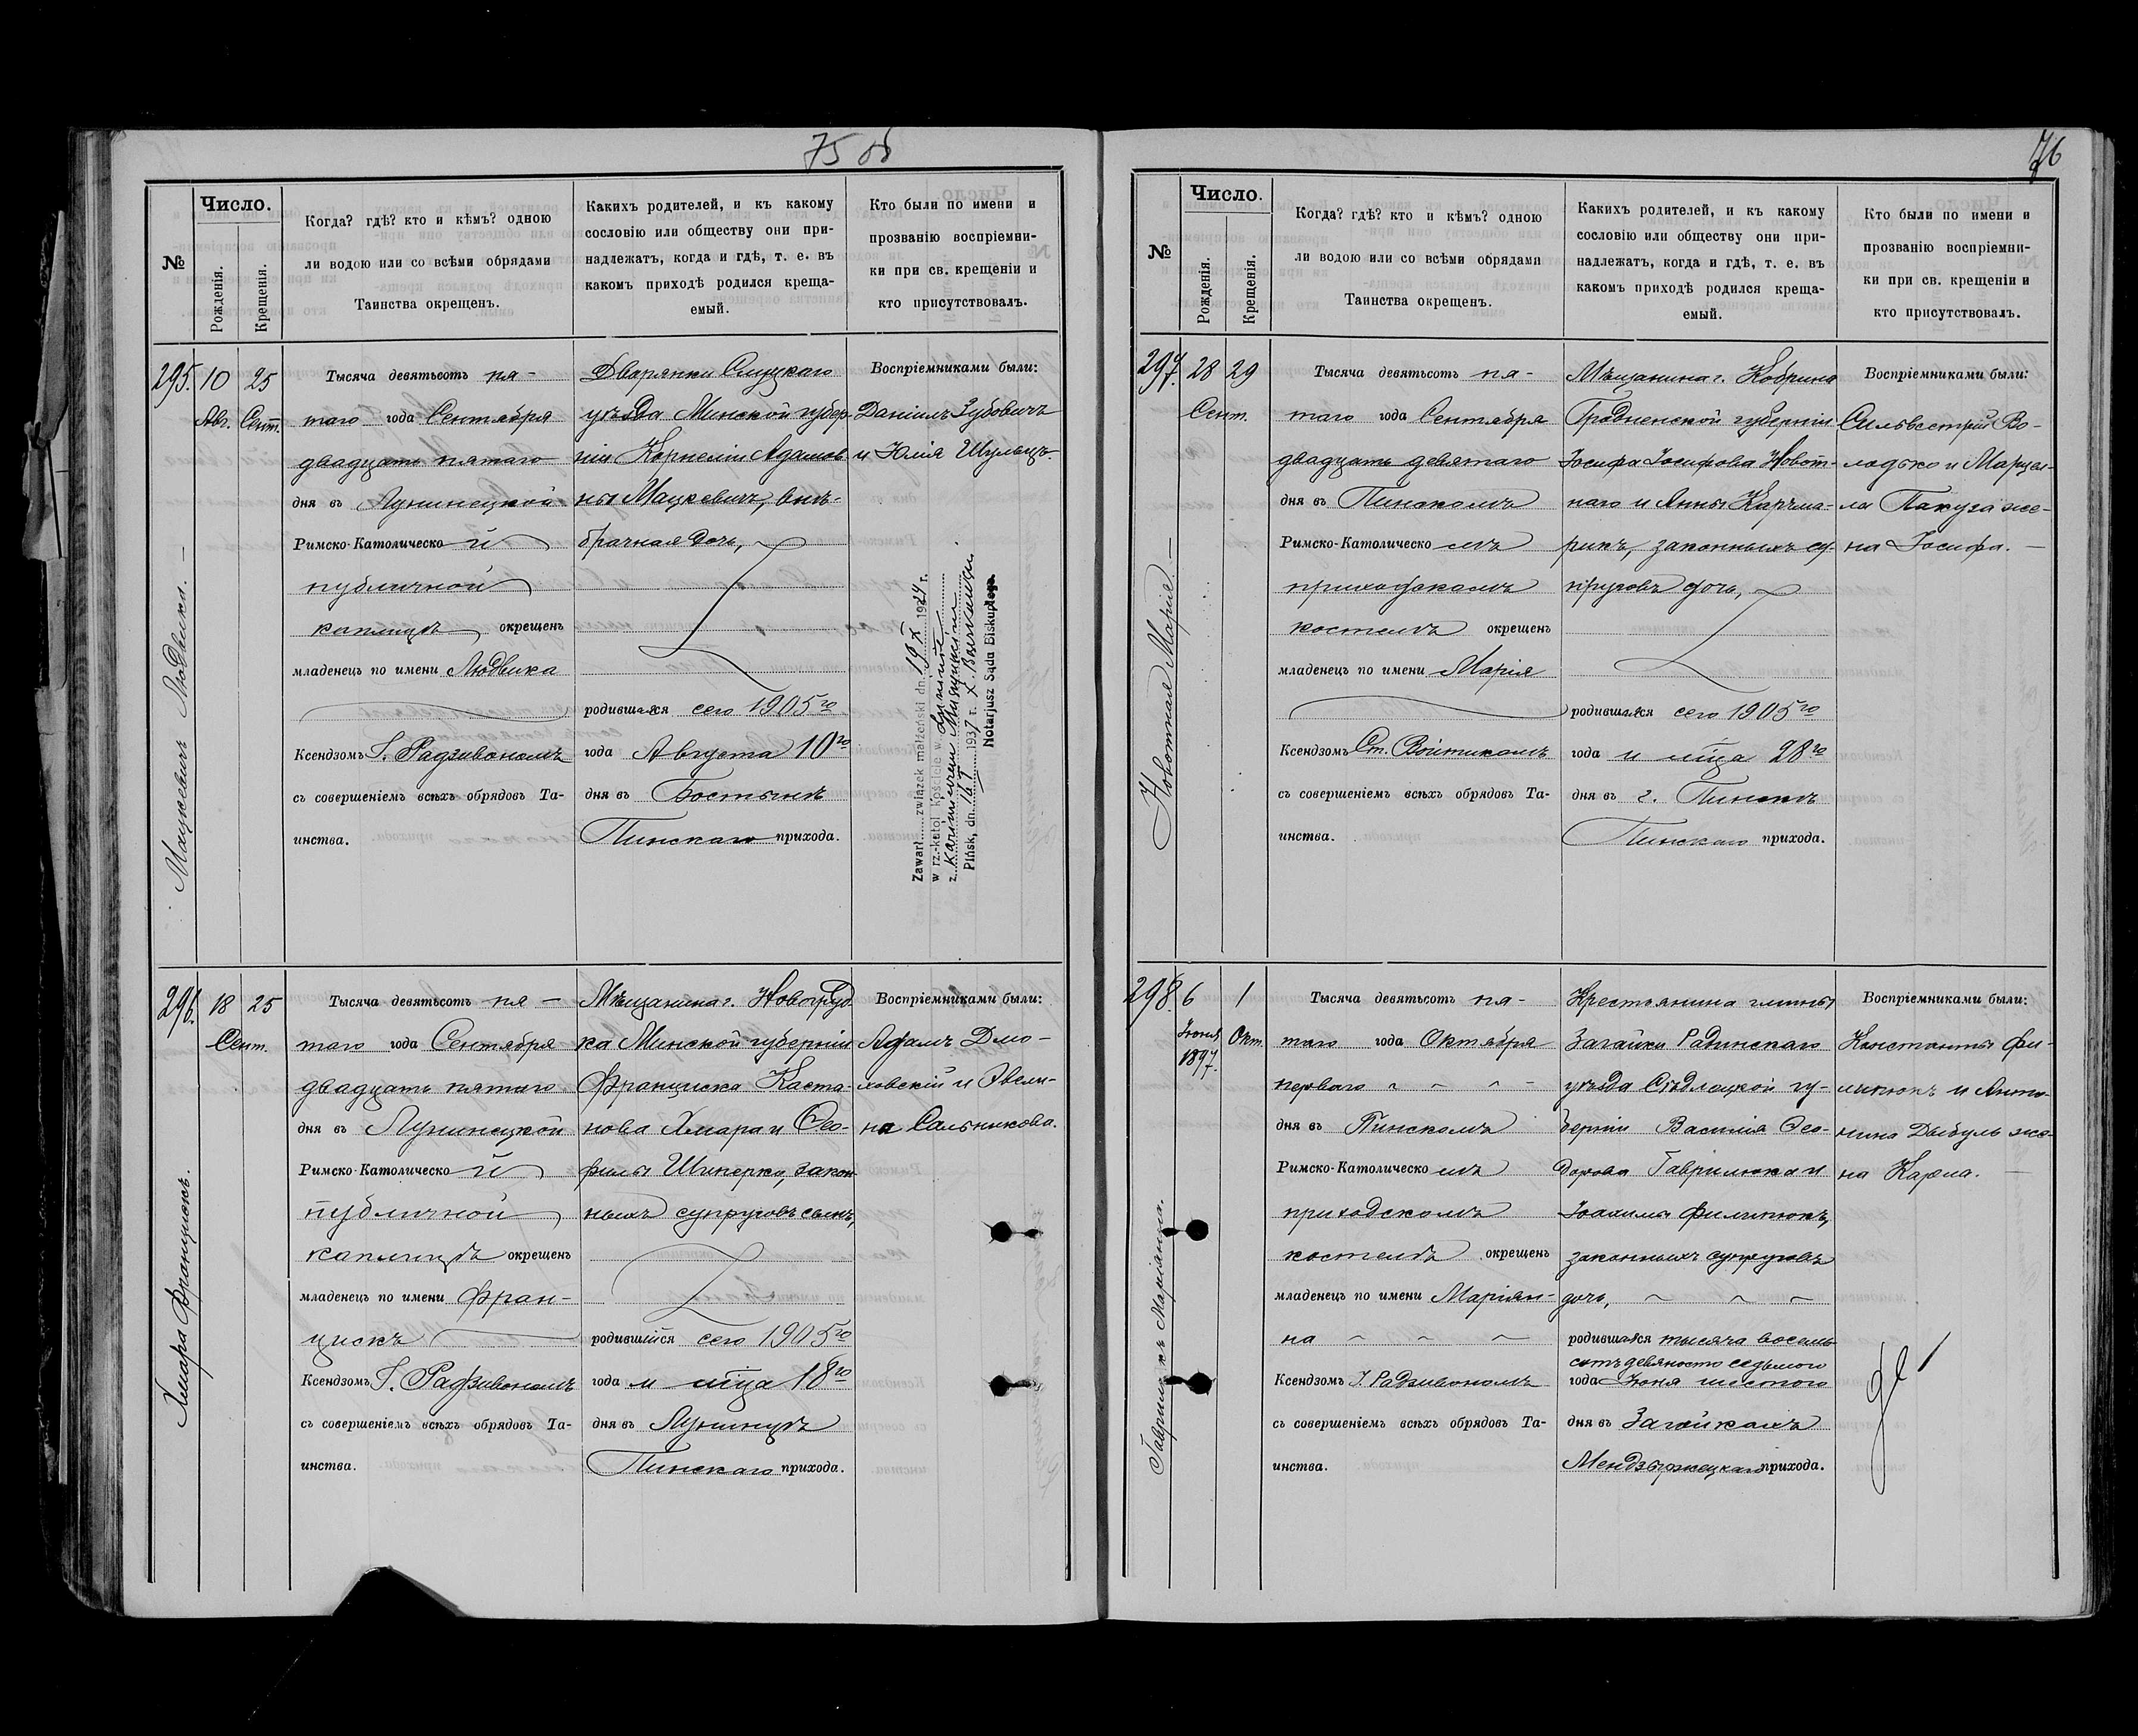 75 об
№
Число.
Рожденія.
Крещенія.
Когда? гдѣ? кто и кѣмъ? одною
ли водою или со всѣми обрядами
Таинства окрещенъ.
Какихъ родителей, и къ какому
сословію или обществу они при-
надлежатъ, когда и гдѣ, т. е. въ
какомъ приходѣ родился креща-
емый.
Кто были по имени и
прозванію воспріемни-
ки при св. крещеніи и
кто присутствовалъ.
295.
Мацкевичъ Людвика. —
10
Авг.
25
Сент.
Тысяча девятьсотъ пя-
таго года Сентября
двадцать пятаго
дня въ Лунинецкой
Римско-Католическо й
публичной
каплицѣ окрещенъ
младенецъ по имени Людвика
Ксендзомъ І. Радзивономъ
съ совершеніемъ всѣхъ обрядовъ Та-
инства.
Дворянки Слуцкаго
уѣзда Минской губер-
ніи Корнеліи Адамов-
ны Мацкевичъ, внѣ-
брачная дочь,
родившаяся сего 1905го
года Августа 10го
дня въ Бостынѣ
Пинскаго прихода.
Воспріемниками были:
Даніилъ Зубовичъ
и Юлія Шульцъ.
Zawarł związek małżeński dn. 19 X 1924 r.
w rz.-katol kościele w Łunińcu
z Kazimierzem
Pińsk, dn. 1937 r.
Notarjusz Sądu Biskupiego.
296.
Хмара Францискъ.
18
Сент.
25
Тысяча девятьсотъ пя-
таго года Сентября
двадцать пятаго
дня въ Лунинецкой
Римско-Католическо й
публичной
каплицѣ окрещенъ
младенецъ по имени Фран-
цискъ
Ксендзомъ І. Радзивономъ
съ совершеніемъ всѣхъ обрядовъ Та-
инства.
Мѣщанина г. Новогруд-
ка Минской губерніи
Франциска Каста-
нова Хмара и Ѳео-
филы Шиперко, закон-
ныхъ супруговъ сынъ,
родившійся сего 1905го
года и мѣца 18го
дня въ Лунинцѣ
Пинскаго прихода.
Воспріемниками были:
Адамъ Дмо-
ховскій и Эвели-
на Сальникова.
76
№
Число.
Рожденія.
Крещенія.
Когда? гдѣ? кто и кѣмъ? одною
ли водою или со всѣми обрядами
Таинства окрещенъ.
Какихъ родителей, и къ какому
сословію или обществу они при-
надлежатъ, когда и гдѣ, т. е. въ
какомъ приходѣ родился креща-
емый.
Кто были по имени и
прозванію воспріемни-
ки при св. крещеніи и
кто присутствовалъ.
297.
Новотная Марія. —
28
Сент.
29
Тысяча девятьсотъ пя-
таго года Сентября
двадцать девятаго
дня въ Пинскомъ
Римско-Католическо мъ
приходскомъ
костелѣ окрещенъ
младенецъ по имени Марія
Ксендзомъ Ст. Войтикомъ
съ совершеніемъ всѣхъ обрядовъ Та-
инства.
Мѣщанина г. Кобрина
Гродненской губерніи
Іосифа Іосифова Новот-
наго и Анны Карчма-
рикъ, законныхъ су-
пруговъ дочь,
родившаяся сего 1905го
года и мѣца 28го
дня въ г. Пинскѣ
Пинскаго прихода.
Воспріемниками были:
Сильвестрій Во-
лодько и Марцел-
ла Пакуза же-
на Іосифа. —
298.
Гаврилюкъ Маріанна.
6
Іюня
1897.
1
Окт.
Тысяча девятьсотъ пя-
таго года Октября
перваго
дня въ Пинскомъ
Римско-Католическо мъ
приходскомъ
костелѣ окрещенъ
младенецъ по имени Маріан-
на
Ксендзомъ І. Радзивономъ
съ совершеніемъ всѣхъ обрядовъ Та-
инства.
Крестьянина гмины
Загайки Радинскаго
уѣзда Сѣдлецкой гу-
берніи Василія Ѳео-
дорова Гаврилюка и
Іоахимы Филипюкъ,
законныхъ супруговъ
дочь,
родившаяся тысяча восемь-
сотъ девяносто седьмого
года Іюня шестого
дня въ Загайкахъ
Мендзыржецкаго прихода.
Воспріемниками были:
Константы Фи-
липюкъ и Анто-
нина Дыбуль же-
на Карла. —